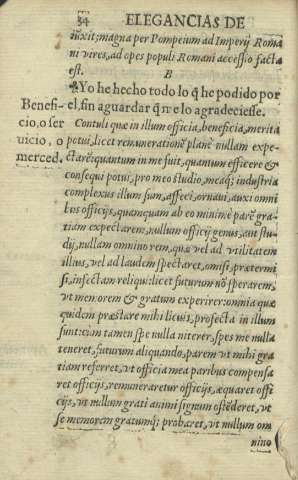 34 ELEGANCIAS DE
iũxit; magna per Pompeium ad Imperij Roma
ni vires, ad opes populi Romani accessio facta
est. B
Yo he hecho todo lo q̃ he podido por
Benefi- el, sin aguardar q̃ me lo agradeciesse.
cio, o ser Contuli quæ in illum officia, beneficia, merita
uicio, o potui, licet remunerationẽ planè nullam expe-
merced. ctarẽ: quantum in me fuit, quantum efficere &
consequi potui, pro meo studio, meaq; industria
complexus illum sum, affeci, ornaui, auxi omni
bus officijs, quamquam ab eo minimè parẽ gra-
tiam expectarem, nullum officij genus, aut stu-
dij, nullam omnino rem, quæ vel ad vtilitatem
illius, vel ad laudem spectaret, omisi, prætermi
si, insectam reliqui: licet futurum nõ sperarem,
vt memorem & gratum experirer: omnia quæ
quidem præstare mihi licuit, profecta in illum
sunt: cum tamen spe nulla niterer, spes me nulla
teneret, futurum aliquando, parem vt mihi gra
tiam referret, vt officia mea paribus compensa
ret officijs, remuneraretur officijs, æquaret offi
cijs, vt nullum grati animi signum ostẽderet, vt
se memorem gratumq; probaret, vt nullum om
nino